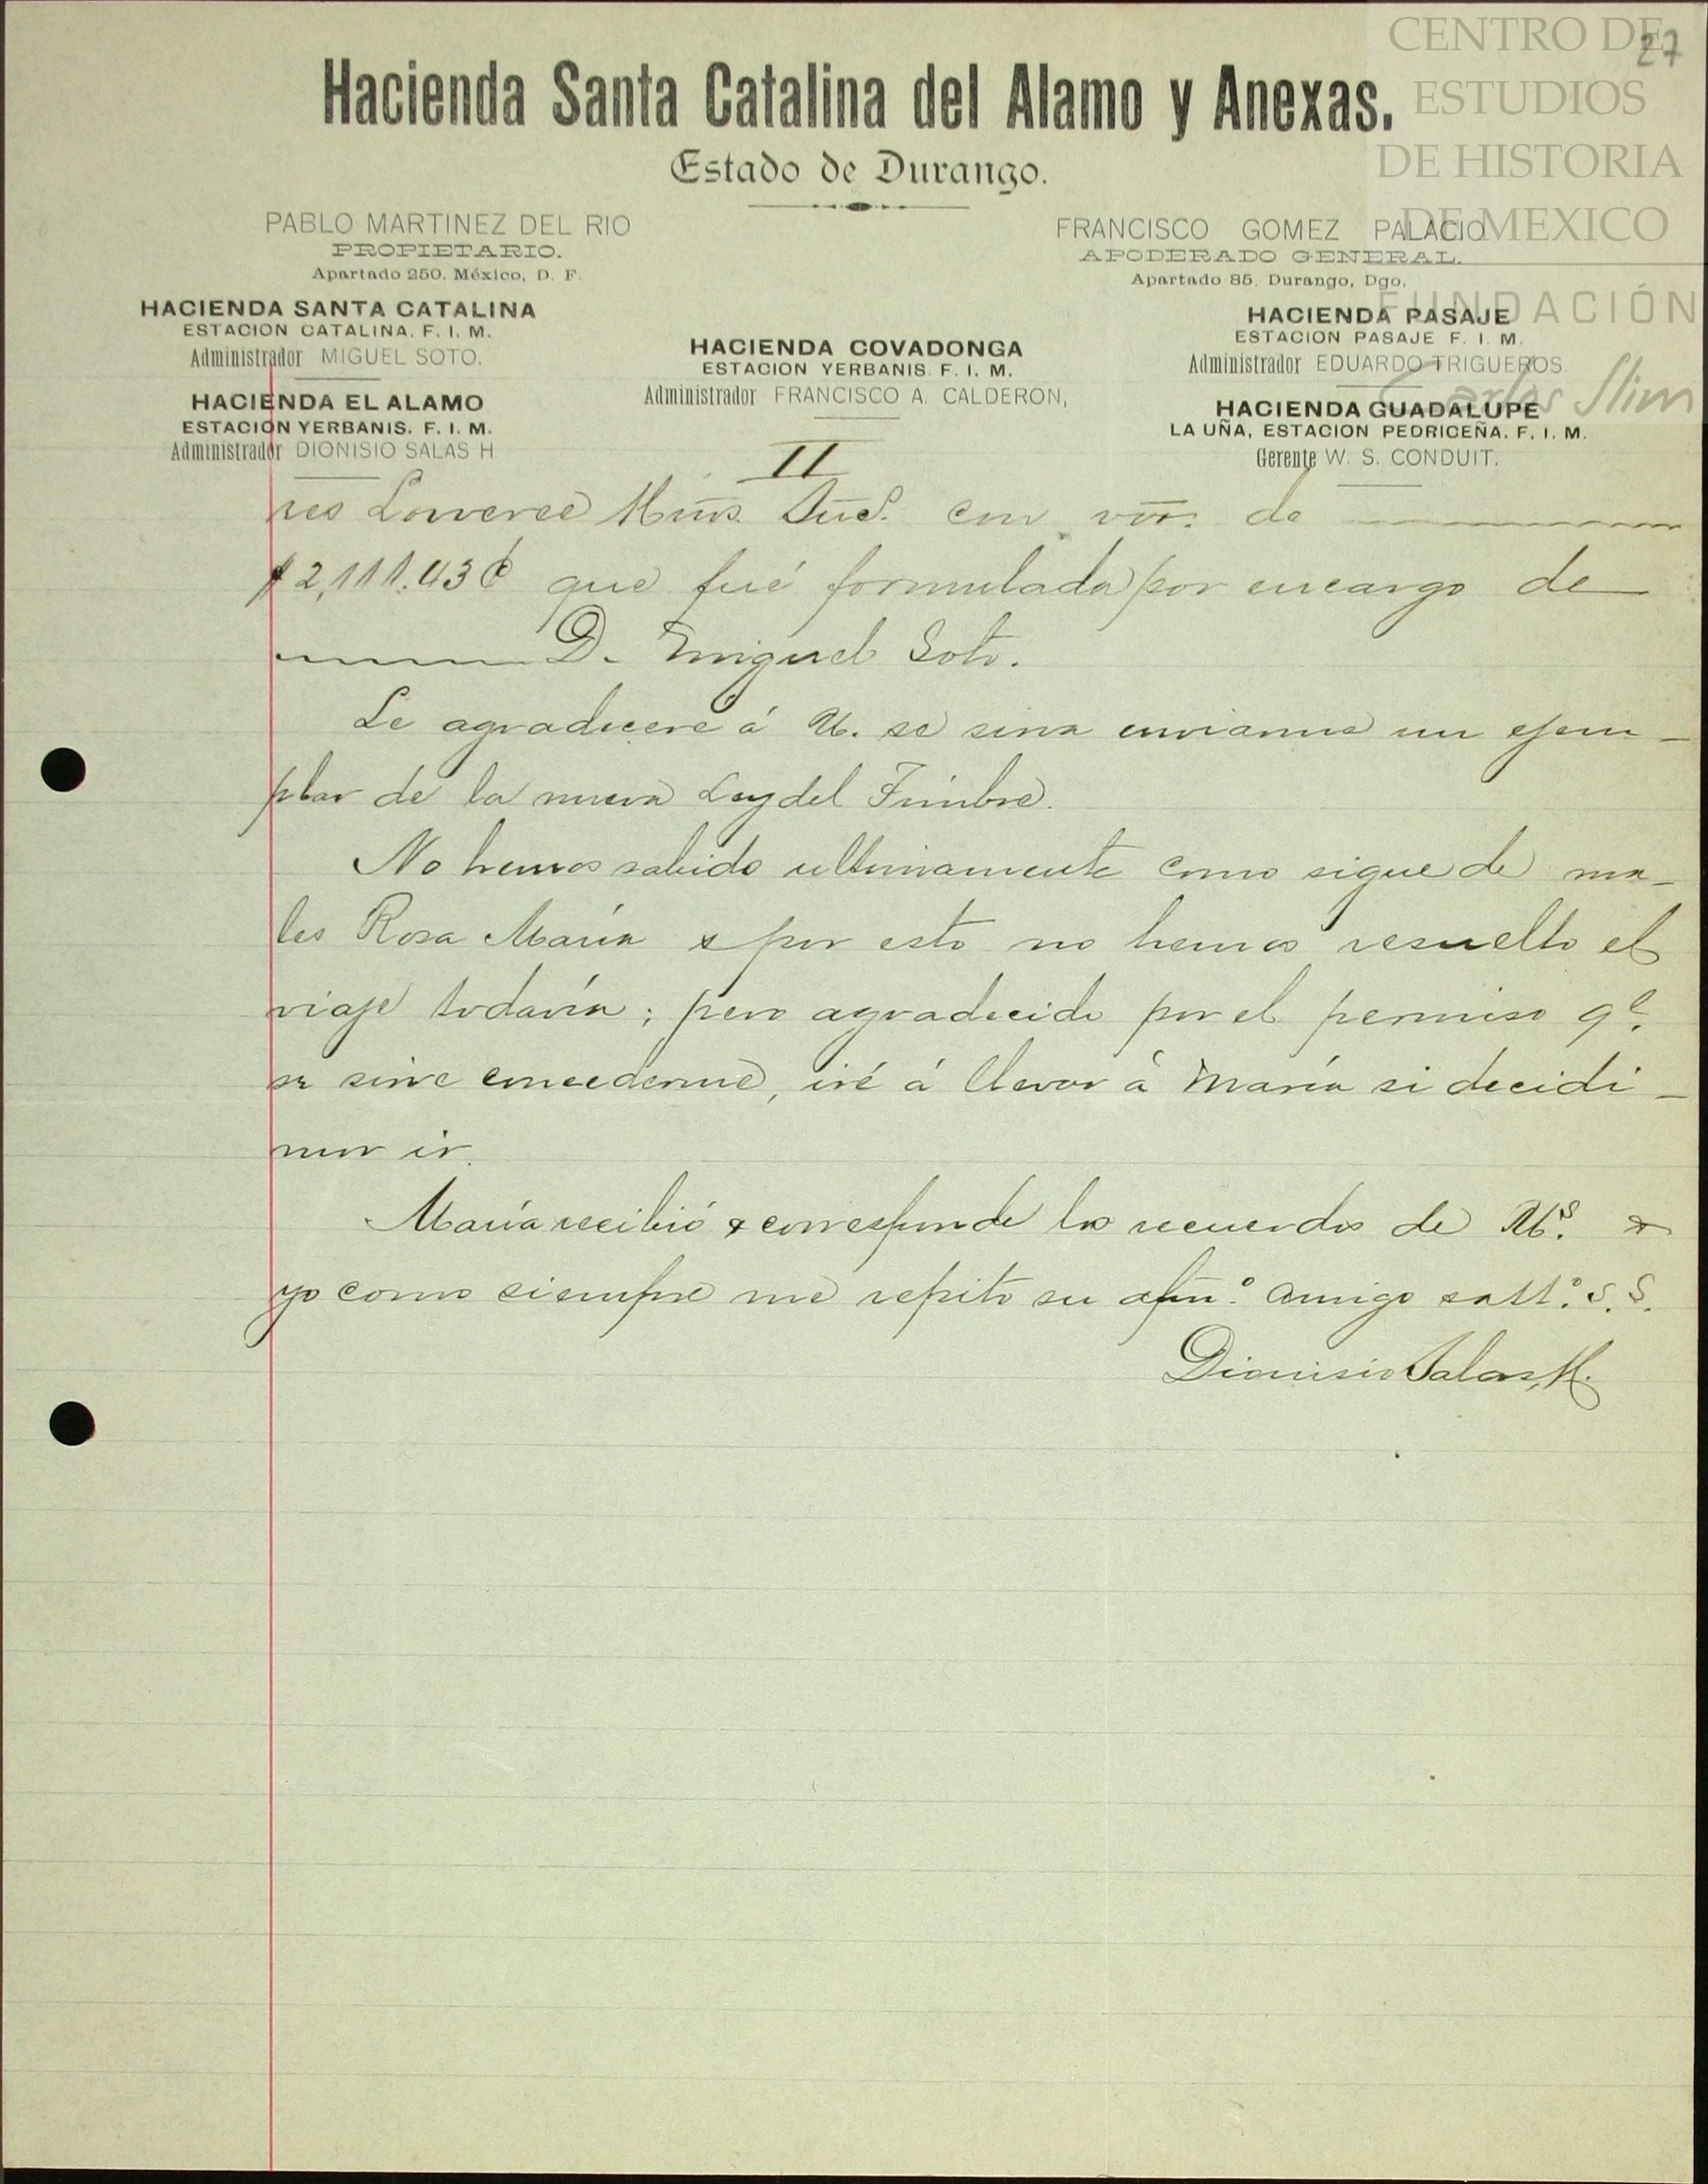 27
CENTRO DE
ESTUDIOS
DE HISTORIA
DE MEXICO
FUNDACIÓN
Carlos Slim
Hacienda Santa Catalina del Alamo y Anexas.
Estado de Durango.
PABLO MARTINEZ DEL RIO
PROPIETARIO.
Apartado 250. México, D. F.
FRANCISCO GOMEZ PALACIO
APODERADO GENERAL.
Apartado 85, Durango, Dgo.
HACIENDA SANTA CATALINA
ESTACION CATALINA. F. I. M.
Administrador MIGUEL SOTO.
HACIENDA EL ALAMO
ESTACION YERBANIS. F. I. M.
Administrador DIONISIO SALAS H
HACIENDA COVADONGA
ESTACION YERBANIS F. I. M.
Administrador FRANCISCO A. CALDERON,
HACIENDA PASAJE
ESTACION PASAJE F. I. M.
Administrador EDUARDO TRIGUEROS.
HACIENDA GUADALUPE
LA UÑA, ESTACION PEDRICEÑA. F. I. M.
Gerente W. S. CONDUIT.
II
res Loweree Hnos. Suc. con vr. de
$2,111.43¢ que fué formulada por encargo de
D. Miguel Soto.
Le agradecere á U. se sirva enviarme un ejem-
plar de la nueva Ley del Timbre.
No hemos sabido ultimamente como sigue de ma-
les Rosa María & por esto no hemos resuelto el
viaje todavía; pero agradecido por el permiso qe.
se sirve concederme, iré á llevar á María si decidi-
mos ir.
María recibió & corresponde los recuerdos de Us. &
yo como siempre me repito su afmo. amigo s. S.
Dionisio Salas H.